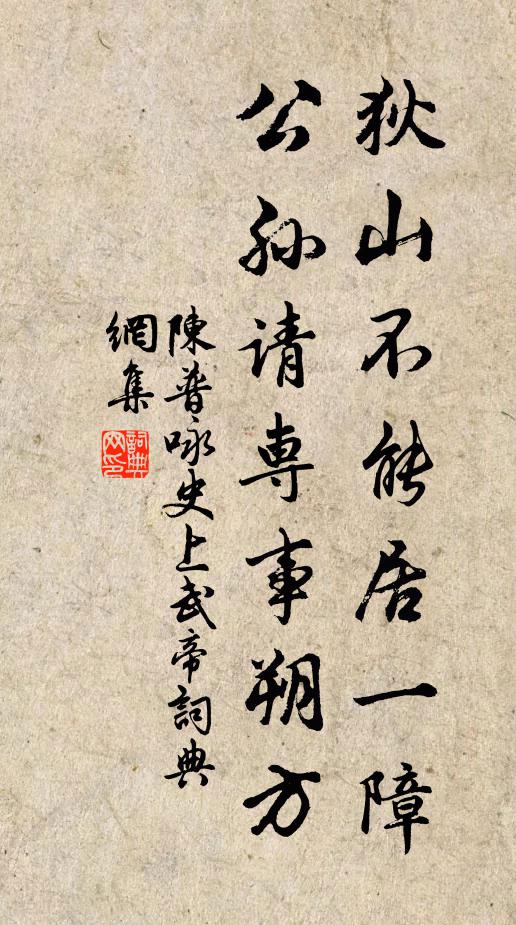 狄山不能居一障
公孙请専事朔方
陳普咏史上武帝詞典
網集
詞典
网印